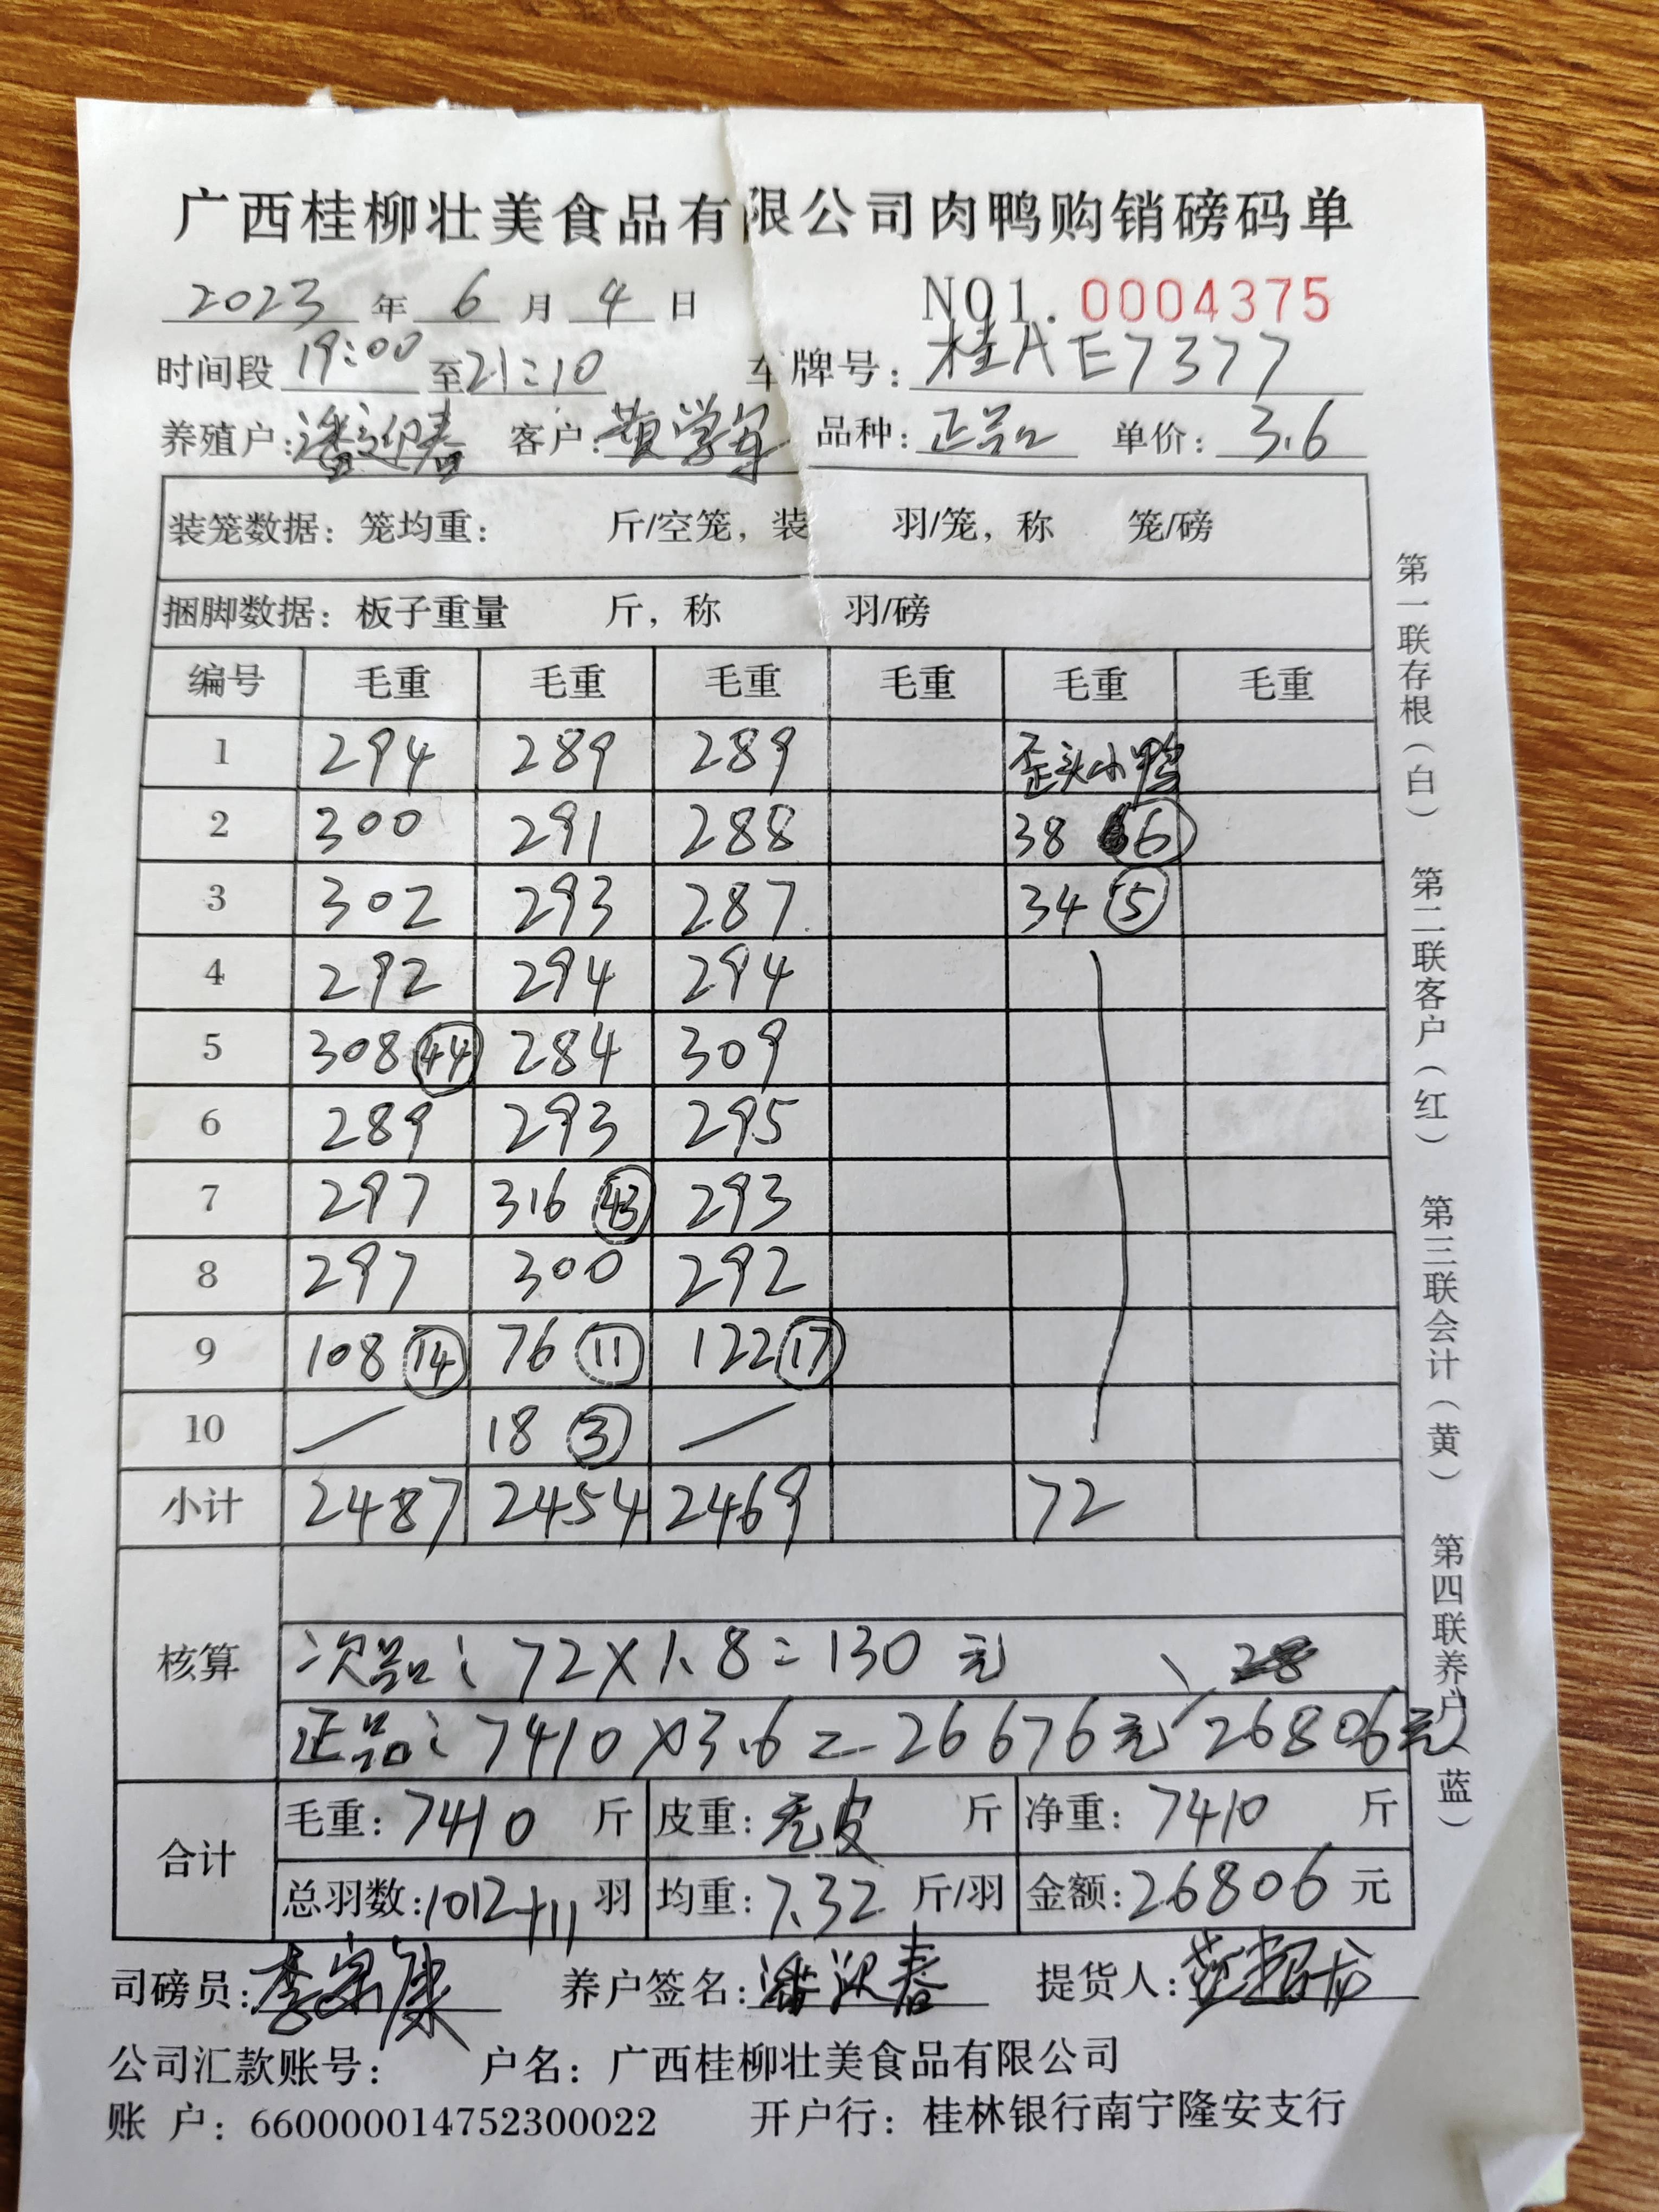 广西桂柳壮美食品有限公司肉鸭购销磅码单
2023 年 6 月 4 日 NO1. 0004375
时间段 19:00 至 21:10 车牌号: 桂A E7377
养殖户: 潘迎春 客户: 黄学军 品种: 正品 单价: 3.6
装笼数据: 笼均重: 斤/空笼, 装 羽/笼, 称 笼/磅
捆脚数据: 板子重量 斤, 称 羽/磅
编号 毛重 毛重 毛重 毛重 毛重 毛重
1 294 289 289 歪头小鸭
2 300 291 288 38 6
3 302 293 287 34 5
4 292 294 294
5 308 44 284 309
6 289 293 295
7 297 316 43 293
8 297 300 292
9 108 14 76 11 122 17
10 18 3
小计 2487 2454 2469 72
核算
次品: 72×1.8=130 元
正品: 7410×3.6=26676元 26806元
合计
毛重: 7410 斤 皮重: 无皮 斤 净重: 7410 斤
总羽数: 1012+11 羽 均重: 7.32 斤/羽 金额: 26806 元
司磅员: 养户签名: 提货人:
公司汇款账号: 户名: 广西桂柳壮美食品有限公司
账 户: 660000014752300022 开户行: 桂林银行南宁隆安支行
第一联存根(白) 第二联客户(红) 第三联会计(黄) 第四联养户(蓝)